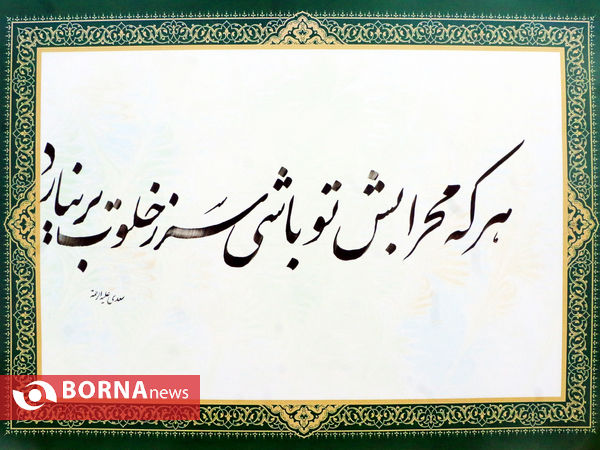 هر که محرابش تو باشی سر ز خلوت برنیارد
سعدی علیه الرحمة
BORNAnews